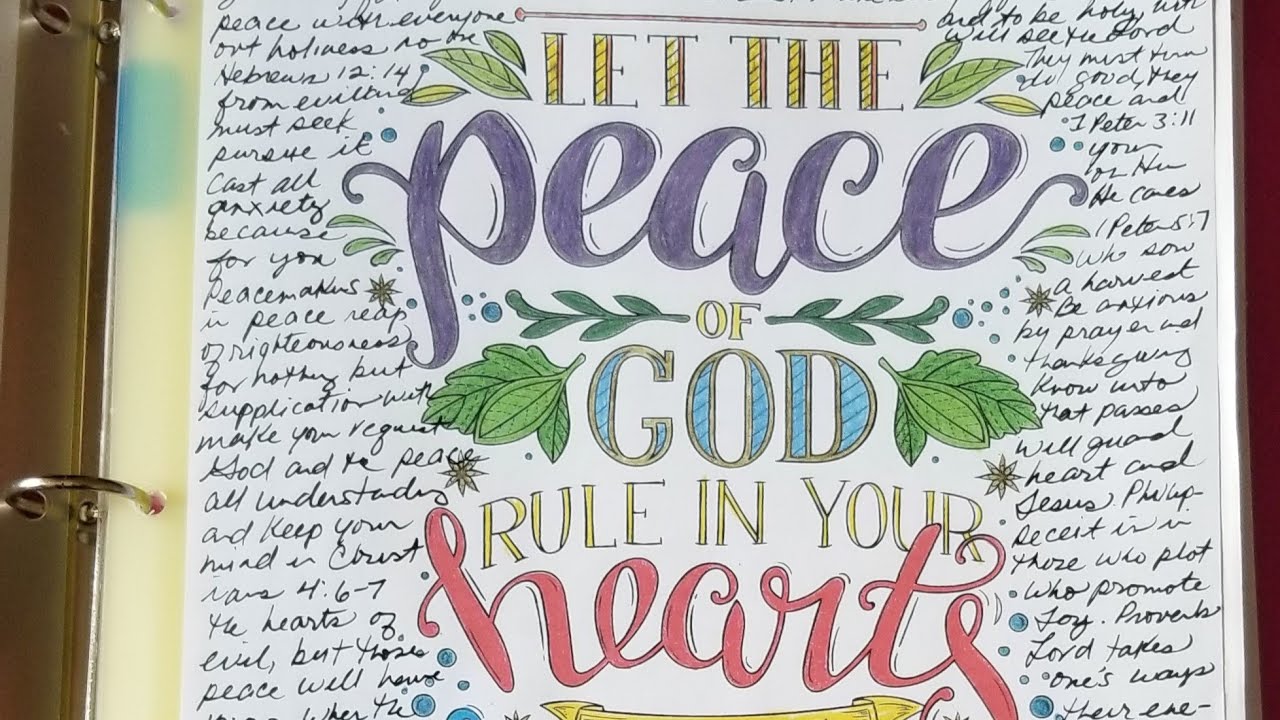 peace with everyone
out holiness no one
Hebrews 12:14
from evil and
must seek
pursue it
Cast all
anxiety
because
for you
Peacemakers
in peace reap
of righteousness
for nothing but
supplication with
make your request
God and the peace
all understanding
and keep your
mind in Christ
ians 4:6-7
the hearts of
evil, but those
peace will have
When the
LET THE
peace
OF
GOD
RULE IN YOUR
hearts
and to be holy, with
will see the Lord
They must turn
do good, they
peace and
1 Peter 3:11
your
on Him
He cares
1 Peter 5:7
who sow
a harvest
Be anxious
by prayer and
thanksgiving
know unto
that passes
will guard
heart and
Jesus. Philip-
deceit is in
those who plot
who promote
Joy. Proverbs
Lord takes
one's ways
their ene-